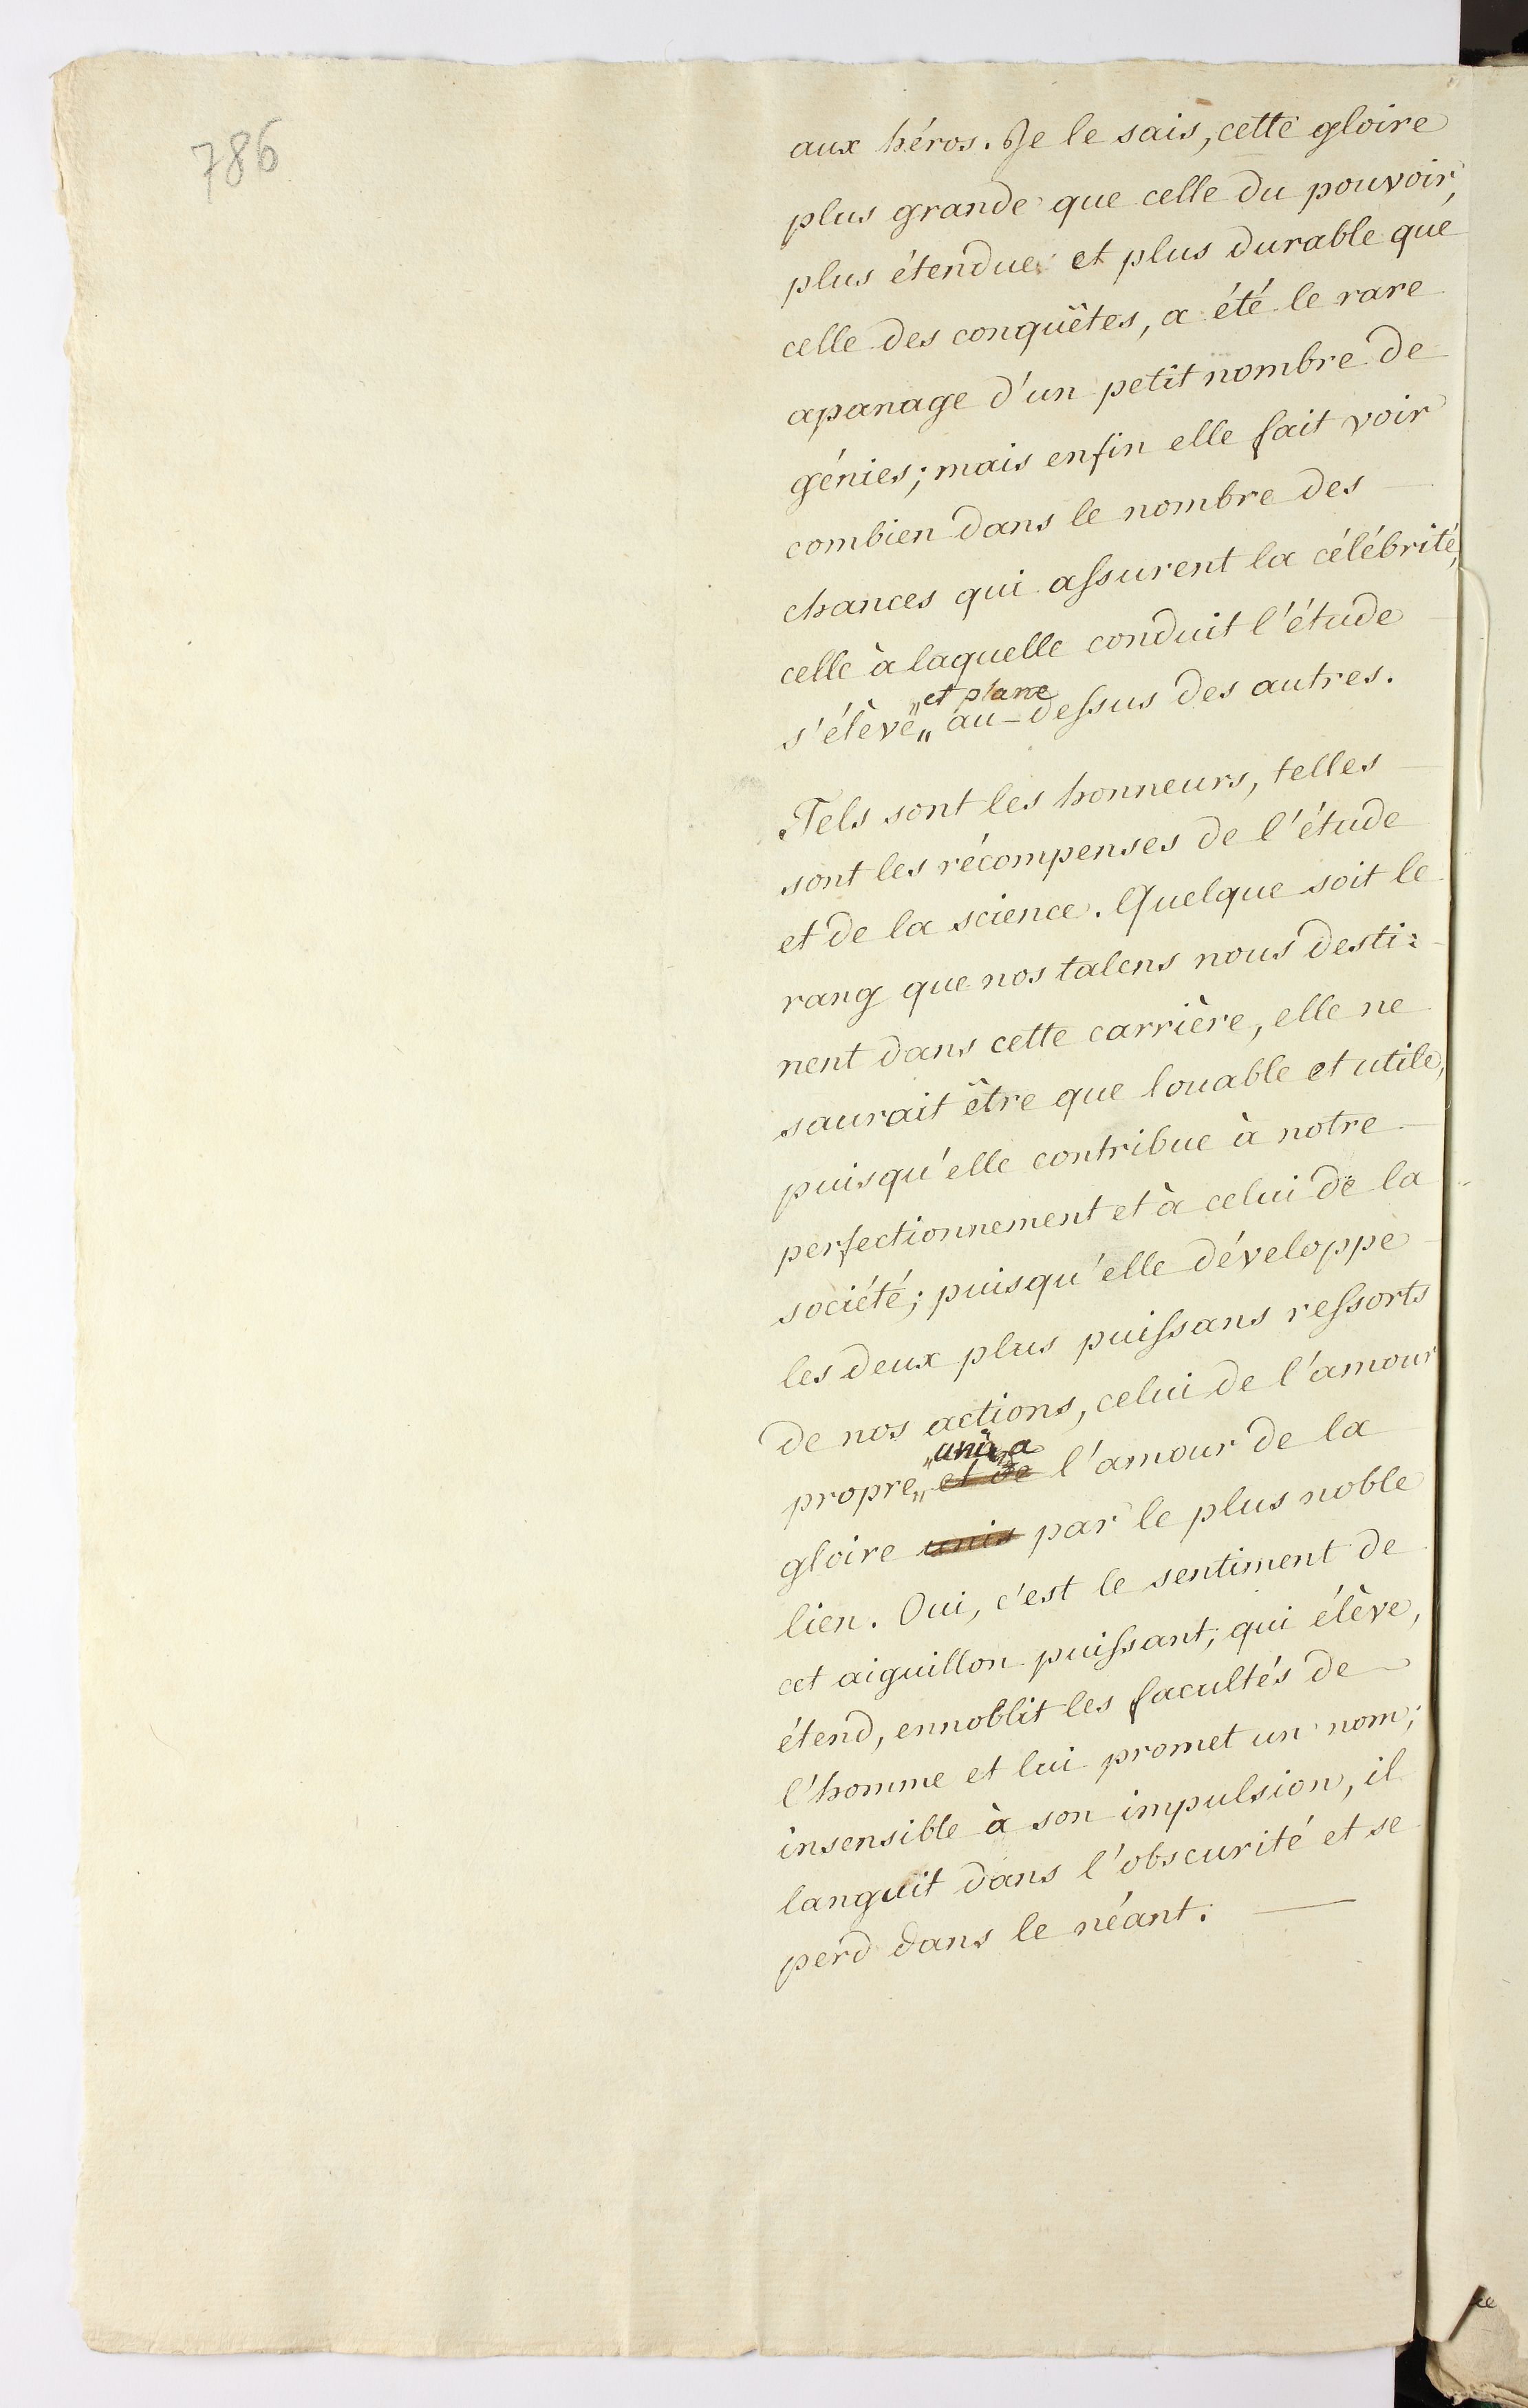 786
aux héros. Je le sais, cette gloire
plus grande que celle du pouvoir,
plus étendue et plus durable que
celle des conquêtes, a été le rare
apanage d'un petit nombre de
génies; mais enfin elle fait voir
combien dans le nombre des
chances qui assurent la célébrité,
celle à laquelle conduit l'étude
„et plane
s'élève„ au-dessus des autres.
Tels sont les honneurs, telles
sont les récompenses de l'étude
et de la science. Quelque soit le
rang que nos talens nous desti:
nent dans cette carrière, elle ne
saurait être que louable et utile,
puisqu'elle contribue à notre
perfectionnement et à celui de la
société; puisqu'elle développe
les deux plus puissans ressorts
de nos actions, celui de l'amour
„uni à
propre„ et de l'amour de la
gloire unis par le plus noble
lien. Oui, c'est le sentiment de
cet aiguillon puissant, qui élève,
étend, ennoblit les facultés de
l'homme et lui promet un nom;
insensible à son impulsion, il
languit dans l'obscurité et se
perd dans le néant.